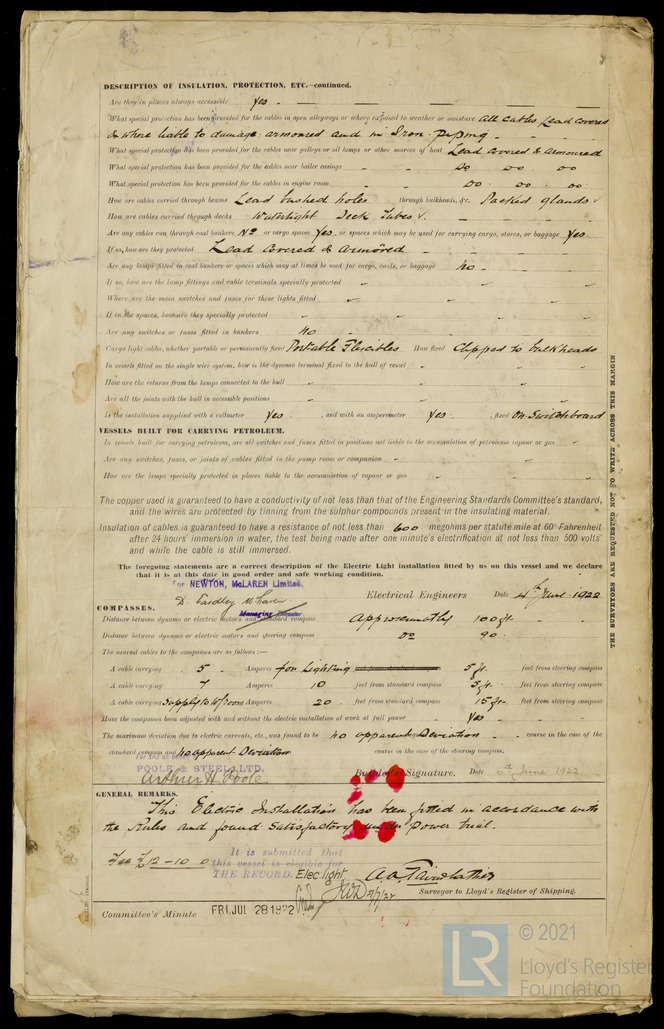 DESCRIPTION OF INSULATION, PROTECTION, ETC.—continued.
Are they in places always accessible Yes
What special protection has been provided for the cables in open alleyways or where exposed to weather or moisture All Cables Lead Covered
& where liable to damage armoured and in Iron piping
What special protection has been provided for the cables near galleys or oil lamps or other sources of heat Lead Covered & Armoured
What special protection has been provided for the cables near boiler casings do do do
What special protection has been provided for the cables in engine room do. do. do
How are cables carried through beams Lead bushed holes through bulkheads, &c. Packed glands
How are cables carried through decks Watertight Deck Tubes
Are any cables run through coal bunkers No or cargo spaces Yes or spaces which may be used for carrying cargo, stores, or baggage Yes
If so, how are they protected Lead Covered & Armored
Are any lamps fitted in coal bunkers or spaces which may at times be used for cargo, coals, or baggage No
If so, how are the lamp fittings and cable terminals specially protected
Where are the main switches and fuses for these lights fitted
If in the spaces, how are they specially protected
Are any switches or fuses fitted in bunkers No
Cargo light cables, whether portable or permanently fixed Portable Flexibles How fixed Clipped to bulkheads
In vessels fitted on the single wire system, how is the dynamo terminal fixed to the hull of vessel
How are the returns from the lamps connected to the hull
Are all the joints with the hull in accessible positions
Is the installation supplied with a voltmeter Yes , and with an amperemeter Yes , fixed On Switchboard
VESSELS BUILT FOR CARRYING PETROLEUM.
In vessels built for carrying petroleum, are all switches and fuses fitted in positions not liable to the accumulation of petroleum vapour or gas
Are any switches, fuses, or joints of cables fitted in the pump room or companion
How are the lamps specially protected in places liable to the accumulation of vapour or gas
The copper used is guaranteed to have a conductivity of not less than that of the Engineering Standards Committee's standard,
and the wires are protected by tinning from the sulphur compounds present in the insulating material.
Insulation of cables is guaranteed to have a resistance of not less than 600 megohms per statute mile at 60° Fahrenheit
after 24 hours' immersion in water, the test being made after one minute's electrification at not less than 500 volts
and while the cable is still immersed.
The foregoing statements are a correct description of the Electric Light installation fitted by us on this vessel and we declare
that it is at this date in good order and safe working condition.
For NEWTON, McLAREN Limited,
Electrical Engineers Date 4th June 1922
Managing
COMPASSES.
Distance between dynamo or electric motors and standard compass Approximately 100 ft
Distance between dynamo or electric motors and steering compass do 90
The nearest cables to the compasses are as follows:—
A cable carrying 5 Amperes for Lighting 5 ft. feet from steering compass
A cable carrying 7 Amperes 10 feet from standard compass 5 ft. feet from steering compass
A cable carrying Supply to W/Room Amperes 20 feet from standard compass 15 ft. feet from steering compass
Have the compasses been adjusted with and without the electric installation at work at full power Yes
The maximum deviation due to electric currents, etc., was found to be no apparent Deviation course in the case of the
standard compass and no apparent Deviation course in the case of the steering compass.
POOLE & STEEL LTD.
Arthur H. Poole Builder's Signature. Date June 1922
GENERAL REMARKS.
This Electric Installation has been fitted in accordance with
the Rules and found satisfactory under power trial.
Fee £12-10 0
It is submitted that
this vessel is eligible for
THE RECORD. Elec. light
Surveyor to Lloyd's Register of Shipping.
Committee's Minute FRI. JUL 28 1922
THE SURVEYORS ARE REQUESTED NOT TO WRITE ACROSS THIS MARGIN.
LR
© 2021
Lloyd's Register
Foundation